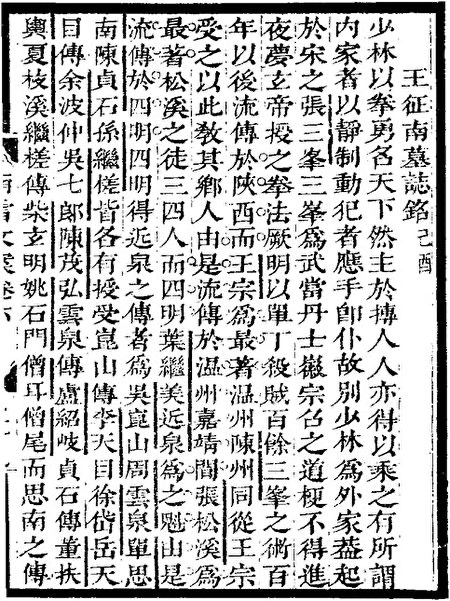 王征南墓誌銘己酉
少林以拳勇名天下然主於搏人人亦得以乘之有所謂
內家者以靜制動犯者應手卽仆故別少林爲外家葢起
於宋之張三峯三峯爲武當丹士徽宗召之道梗不得進
夜夢玄帝授之拳法厥明以單丁殺賊百餘三峯之術百
年以後流傳於陝西而王宗爲最著温州陳州同從王宗
受之以此敎其鄉人由是流傳於温州嘉靖間張松溪爲
最著松溪之徒三四人而四明葉繼美近泉爲之魁由是
流傳於四明四明得近泉之傳者爲吳崑山周雲泉單思
南陳貞石孫繼槎皆各有授受崑山傳李天目徐岱岳天
目傳余波仲吳七郎陳茂弘雲泉傳盧紹岐貞石傳董扶
輿夏枝溪繼槎傳柴玄明姚石門僧耳僧尾而思南之傳